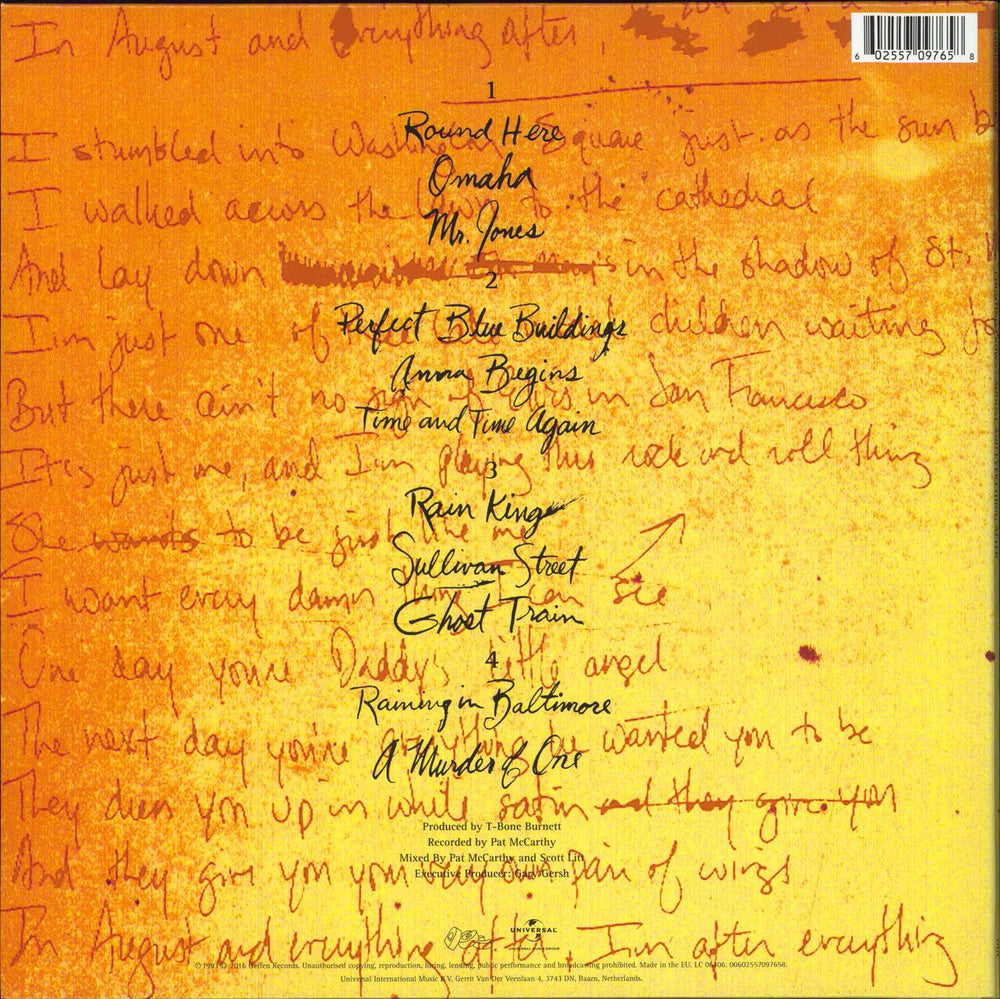 In August and Everything after,
6 02557 09765 8
1
Round Here
I stumbled into Washington Square just as the sun b
Omaha
I walked across the lawn to the cathedral
Mr. Jones
And lay down in the shadow of St.
2
Perfect Blue Buildings
I'm just one of children waiting fo
Anna Begins
But there ain't no sign of in San Francisco
Time and Time Again
It's just me, and I'm playing this rock and roll thing
3
Rain King
She wants to be just like me
Sullivan Street
I want every damn thing I can see
Ghost Train
One day you're Daddy's little angel
4
Raining in Baltimore
The next day you're everything he wanted you to be
A Murder of One
They dress you up in white satin and they give you
Produced by T-Bone Burnett
Recorded by Pat McCarthy
Mixed By Pat McCarthy and Scott Litt
Executive Producer: Gary Gersh
And they give you your very own pair of wings
UNIVERSAL
UNIVERSAL MUSIC GROUP
In August and everything after, I'm after everything
℗ 1993 © 2016 Geffen Records. Unauthorised copying, reproduction, hiring, lending, public performance and broadcasting prohibited. Made in the EU. LC 06406. 00602557097658.
Universal International Music B.V. Gerrit Van Der Veenlaan 4, 3743 DN, Baarn, Netherlands.